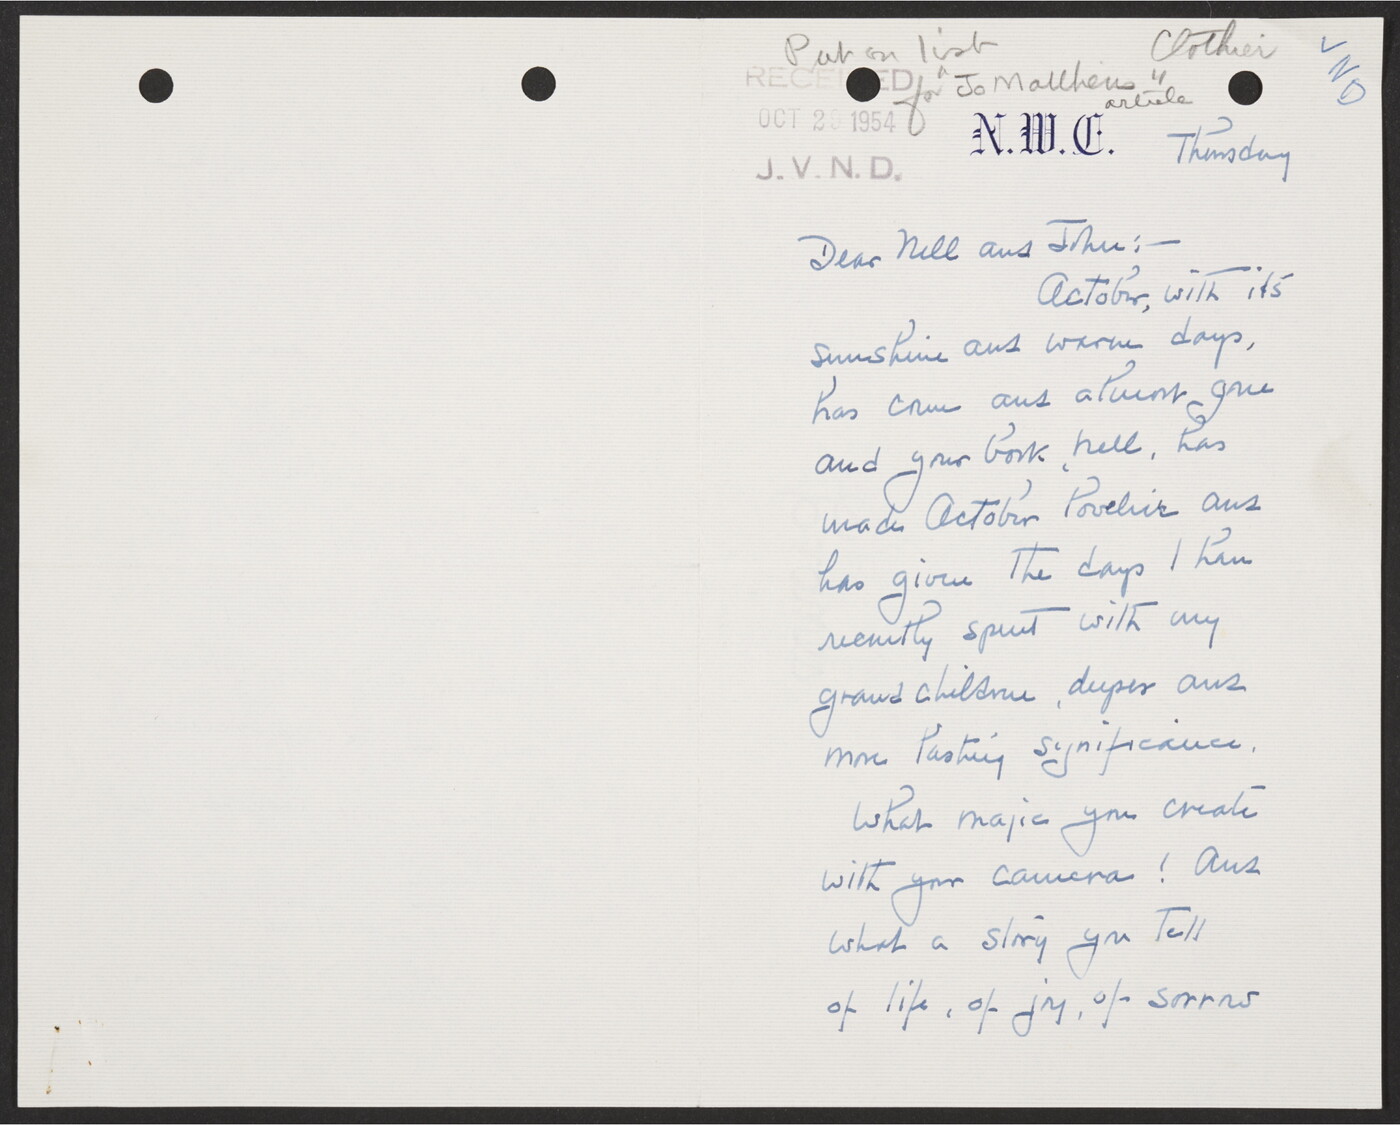 Put on list Clothier VND
RECEIVED for "Jo Matthews"
article
OCT 29 1954
N.W.C. Thursday
J. V. N. D.
Dear Nell and John:—
October, with its
sunshine and warm days,
has come and almost gone
and your book, Nell, has
made October lovelier and
has given the days I have
recently spent with my
grandchildren, deeper and
more lasting significance.
What majic you create
with your camera! And
what a story you tell
of life, of joy, of sorrow